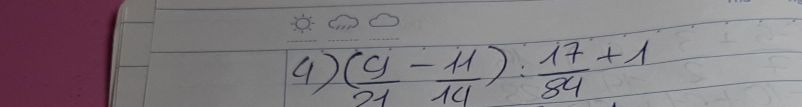 4) (9/21 - 11/14) : 17/84 + 1